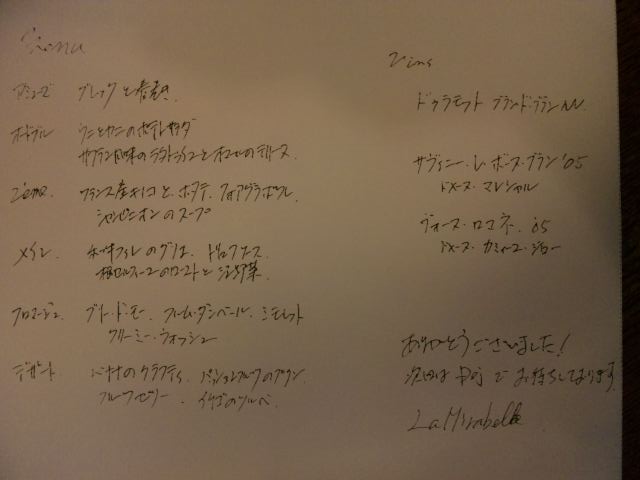 Menu
アミューズ ブレックと春巻き
オードブル ウニとカニのポテトサラダ
サフラン風味のラタトゥイユとオマールのテリーヌ
2ème フランス産キノコと、ホタテ、フォアグラポワレ
シャンピニオンのスープ
メイン 和牛フィレのグリエ、トリュフソース
のローストと 野菜
フロマージュ ブリ・ド・モー フルム・ダンベール、ミモレット
クリーミー・ウォッシュ
デザート バナナのクラフティ、パッションフルーツのプリン
フルーツゼリー、イチゴのソルベ
Vins
ドゥラモット ブラン・ド・ブラン NV.
サヴィニー・レ・ボーヌ・ブラン '05
ドメーヌ・マレシャル
ヴォーヌ・ロマネ '05
ドメーヌ・カミュゾ・ジロー
ありがとうございました!
次回は でお待ちしております
La Mirabelle